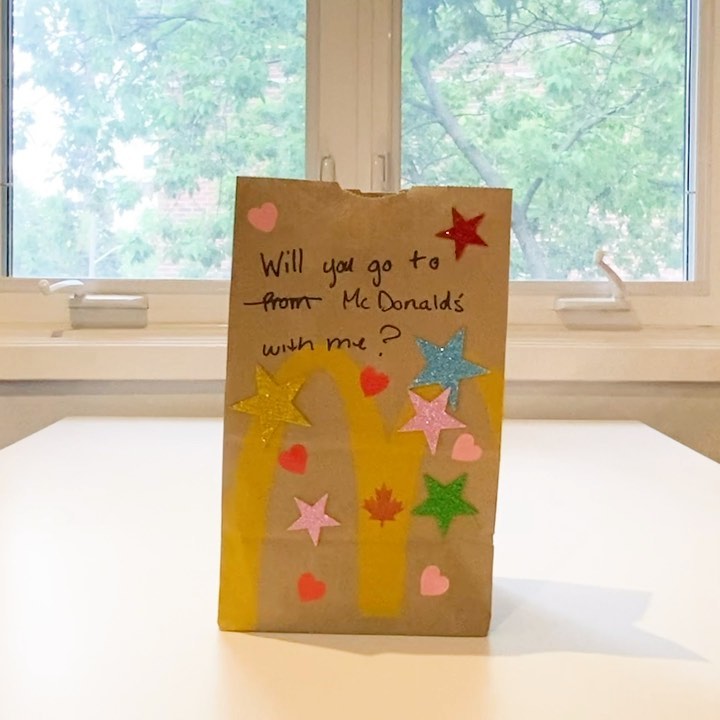 Will you go to
prom McDonald's
with me?